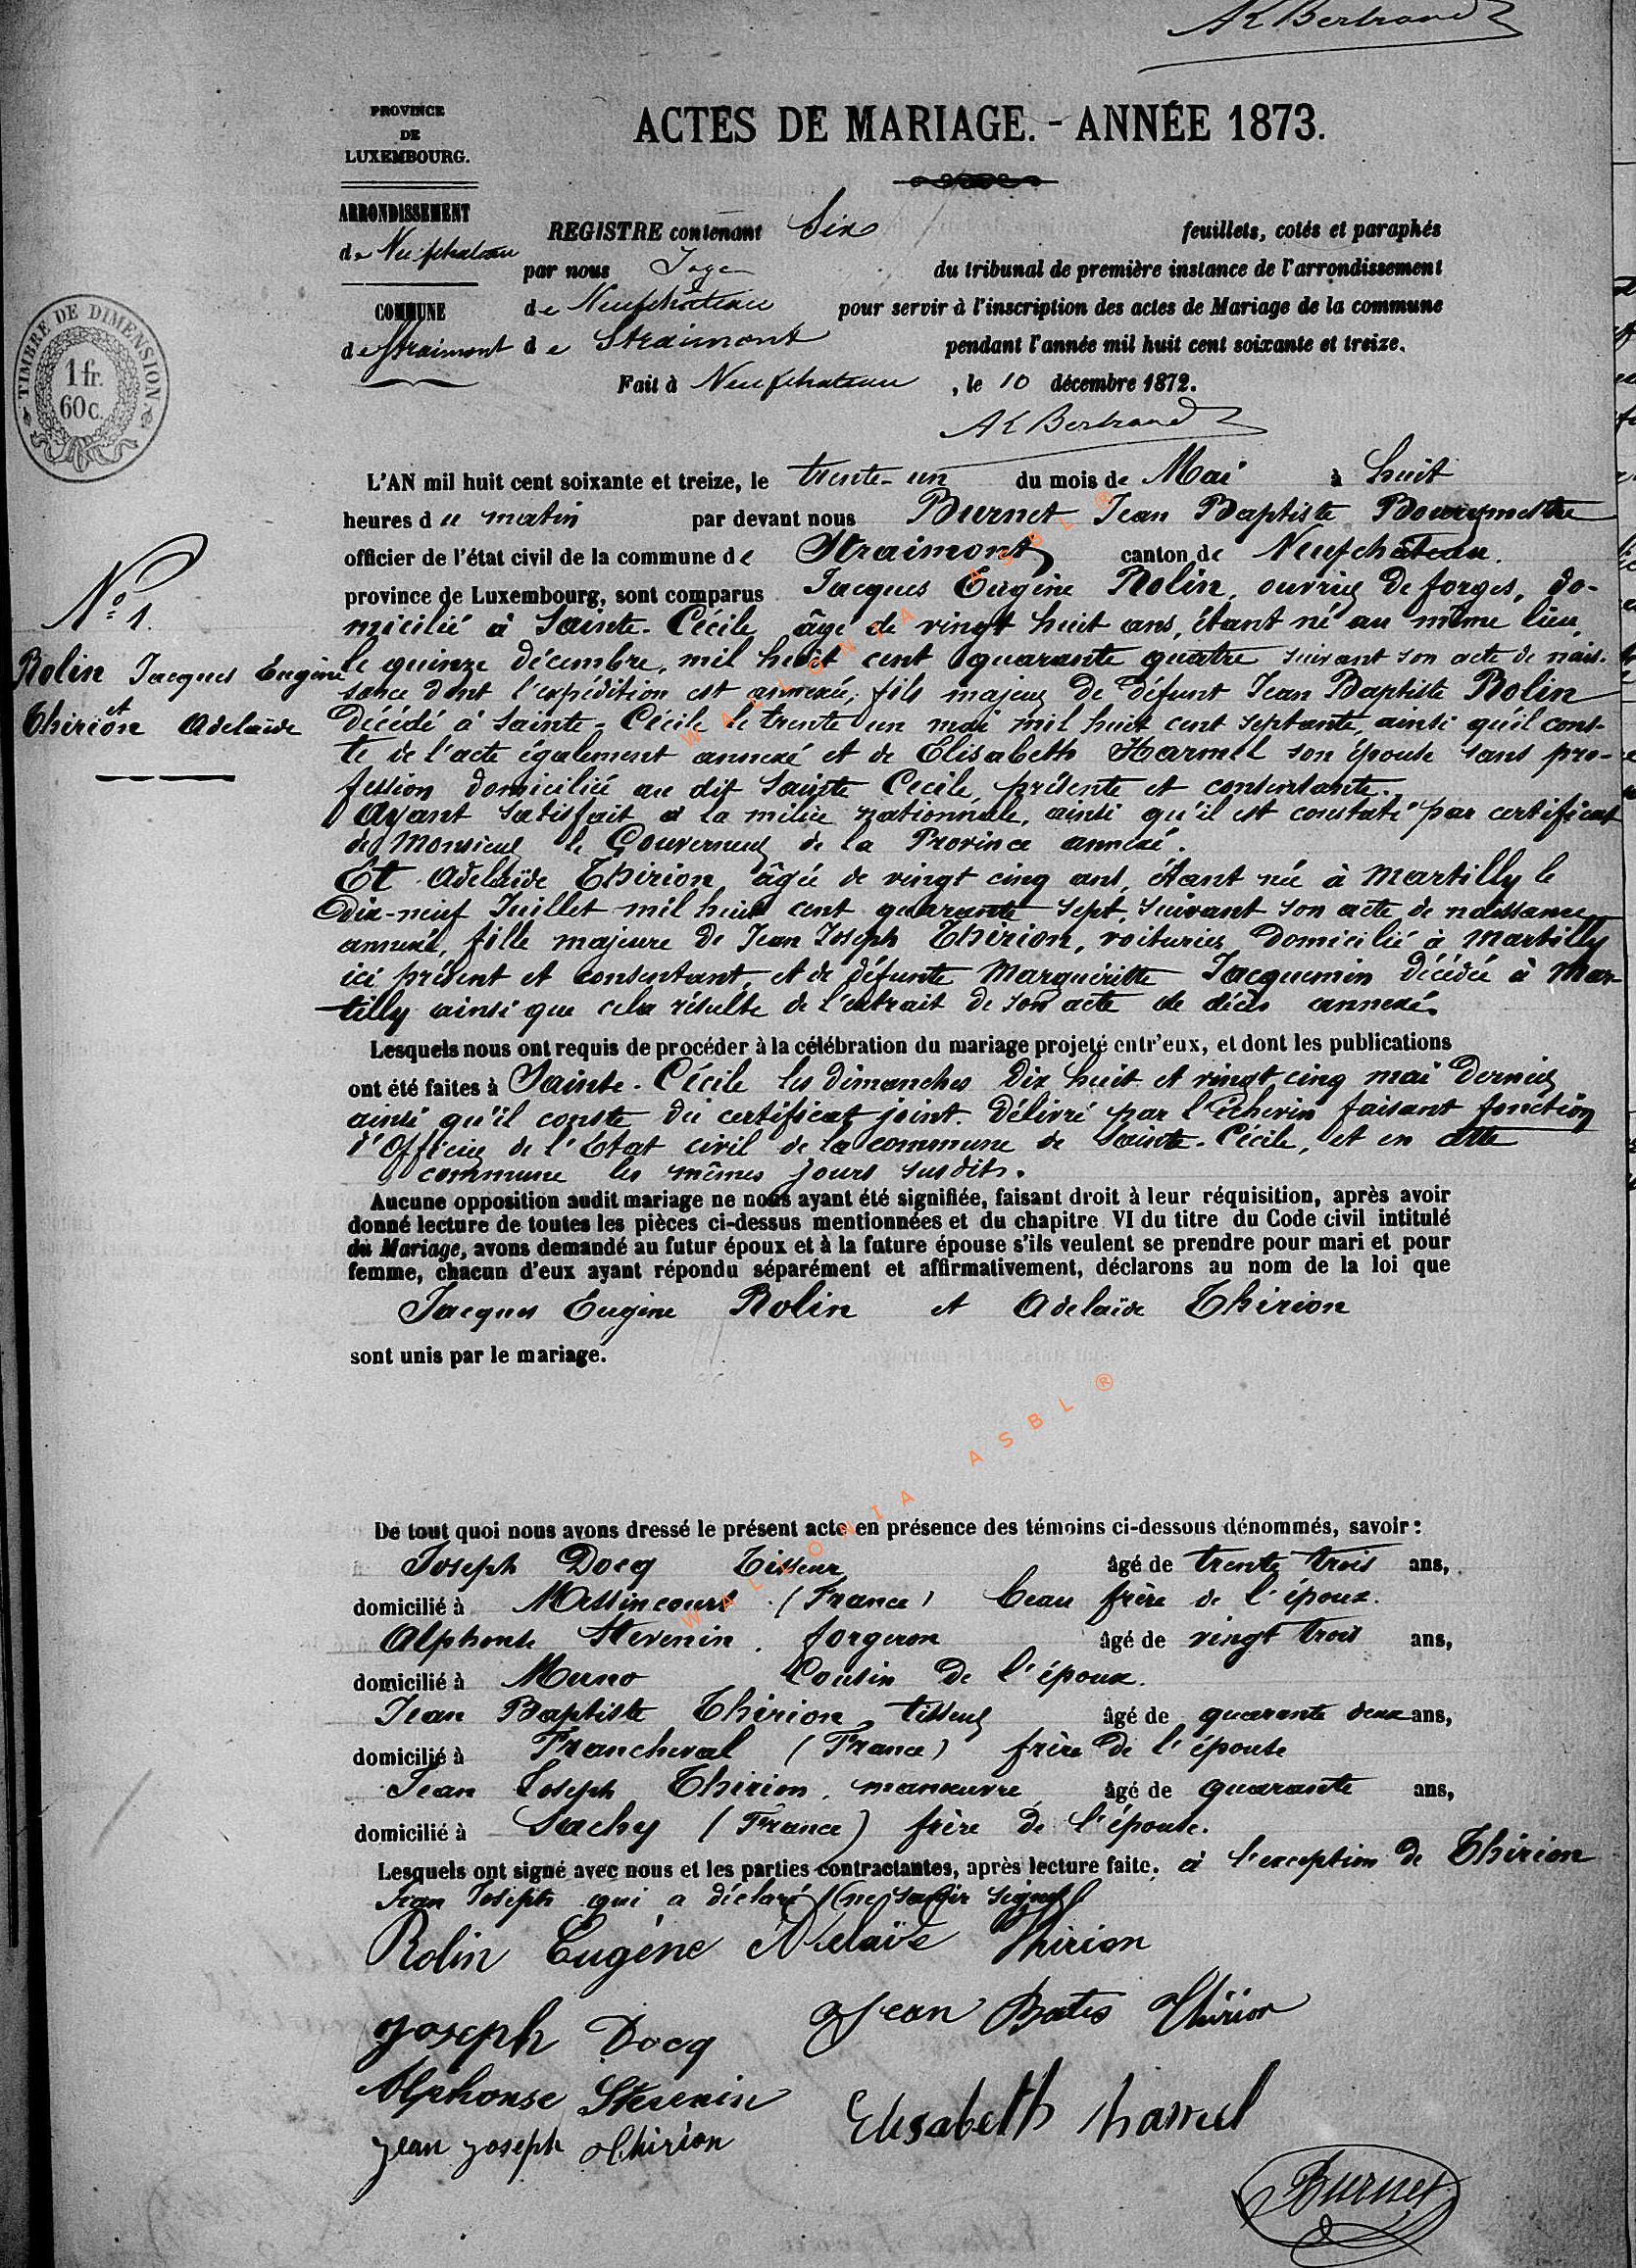 AE Bertrand
PROVINCE
DE
LUXEMBOURG.
ACTES DE MARIAGE. - ANNÉE 1873.
ARRONDISSEMENT
de Neufchateau
COMMUNE
de Straimont
REGISTRE contenant Six feuillets, cotés et paraphés
par nous Juge du tribunal de première instance de l'arrondissement
de Neufchâteau pour servir à l'inscription des actes de Mariage de la commune
de Straimont pendant l'année mil huit cent soixante et treize.
Fait à Neufchateau, le 10 décembre 1872.
AE Bertrand
TIMBRE DE DIMENSION.
1 fr.
60 c.
L'AN mil huit cent soixante et treize, le trente-un du mois de Mai à huit
heures du matin par devant nous Burnet Jean Baptiste Bourgmestre
officier de l'état civil de la commune de Straimont canton de Neufchâteau.
province de Luxembourg, sont comparus Jacques Eugène Rolin, ouvrier de forges, do-
micilié à Sainte-Cécile âgé de vingt huit ans, étant né au même lieu,
le quinze décembre, mil huit cent quarante quatre suivant son acte de nais-
sance dont l'expédition est annexée; fils majeur de défunt Jean Baptiste Rolin
décédé à Sainte-Cécile le trente un mai mil huit cent septante, ainsi qu'il cons-
te de l'acte également annexé et de Elisabeth Harmel son épouse sans pro-
fession domiciliée au dit Sainte Cecile, présente et consentante.
Ayant satisfait à la milice nationnale, ainsi qu'il est constaté par certificat
de Monsieur le Gouverneur de la Province annexé.
Et Adelaïde Thirion âgée de vingt cinq ans, étant née à Martilly le
dix-neuf Juillet mil huit cent quarante sept, suivant son acte de naissance
annexé, fille majeure de Jean Joseph Thirion, voiturier domicilié à Martilly
ici présent et consentant, et de défunte Marguéritte Jacquemin décédée à Mar-
tilly ainsi que cela résulte de l'extrait de son acte de décès annexé.
N° 1.
Rolin Jacques Eugène
et
Thirion Adelaïde
Lesquels nous ont requis de procéder à la célébration du mariage projeté entr'eux, et dont les publications
ont été faites à Sainte-Cécile les dimanches dix huit et vingt cinq mai dernier
ainsi qu'il conste du certificat joint. délivré par l'Echevin faisant fonction
d'Officier de l'Etat civil de la commune de Sainte-Cécile, et en cette
commune les mêmes jours susdits.
Aucune opposition audit mariage ne nous ayant été signifiée, faisant droit à leur réquisition, après avoir
donné lecture de toutes les pièces ci-dessus mentionnées et du chapitre VI du titre du Code civil intitulé
du Mariage, avons demandé au futur époux et à la future épouse s'ils veulent se prendre pour mari et pour
femme, chacun d'eux ayant répondu séparément et affirmativement, déclarons au nom de la loi que
Jacques Eugène Rolin et Adelaïde Thirion
sont unis par le mariage.
WALLONIA ASBL ®
WALLONIA ASBL ®
De tout quoi nous avons dressé le présent acte en présence des témoins ci-dessous dénommés, savoir :
Joseph Docq Tisseur âgé de trente trois ans,
domicilié à Messincourt (France) beau frère de l'époux.
Alphonse Stevenin, forgeron âgé de vingt trois ans,
domicilié à Muno Cousin de l'époux.
Jean Baptiste Thirion, tisseur âgé de quarante deux ans,
domicilié à Francheval (France) frère de l'épouse
Jean Joseph Thirion, manœuvre âgé de quarante ans,
domicilié à Sachy (France) frère de l'épouse.
Lesquels ont signé avec nous et les parties contractantes, après lecture faite, à l'exception de Thirion
Jean Joseph qui a déclaré ne savoir signer
Rolin Eugène Adelaïde Thirion
Joseph Docq Jean Batis Thirion
Alphonse Stevenin
Elisabeth harmel
Jean Joseph Thirion
Burnet